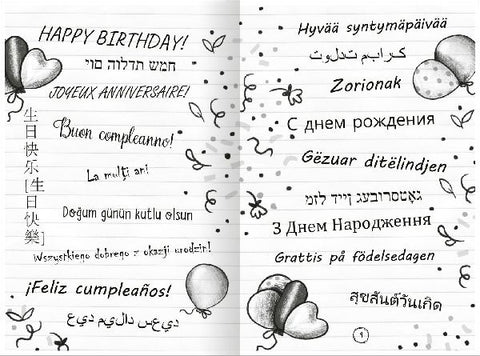 HAPPY BIRTHDAY!
חמש תדלוה םוי
JOYEUX ANNIVERSAIRE!
生日快乐 [生日快樂]
Buon compleanno!
La mulţi ani
Doğum günün kutlu olsun
Wszystkiego dobrego z okazji urodzin!
¡Feliz cumpleaños!
ديعس دالیم ديع
Hyvää syntymäpäivää
کرابم تدلوت
Zorionak
С днем рождения
Gëzuar ditëlindjen
גאָטסרובעג ןייד לזמ
З Днем Народження
Grattis på födelsedagen
สุขสันต์วันเกิด